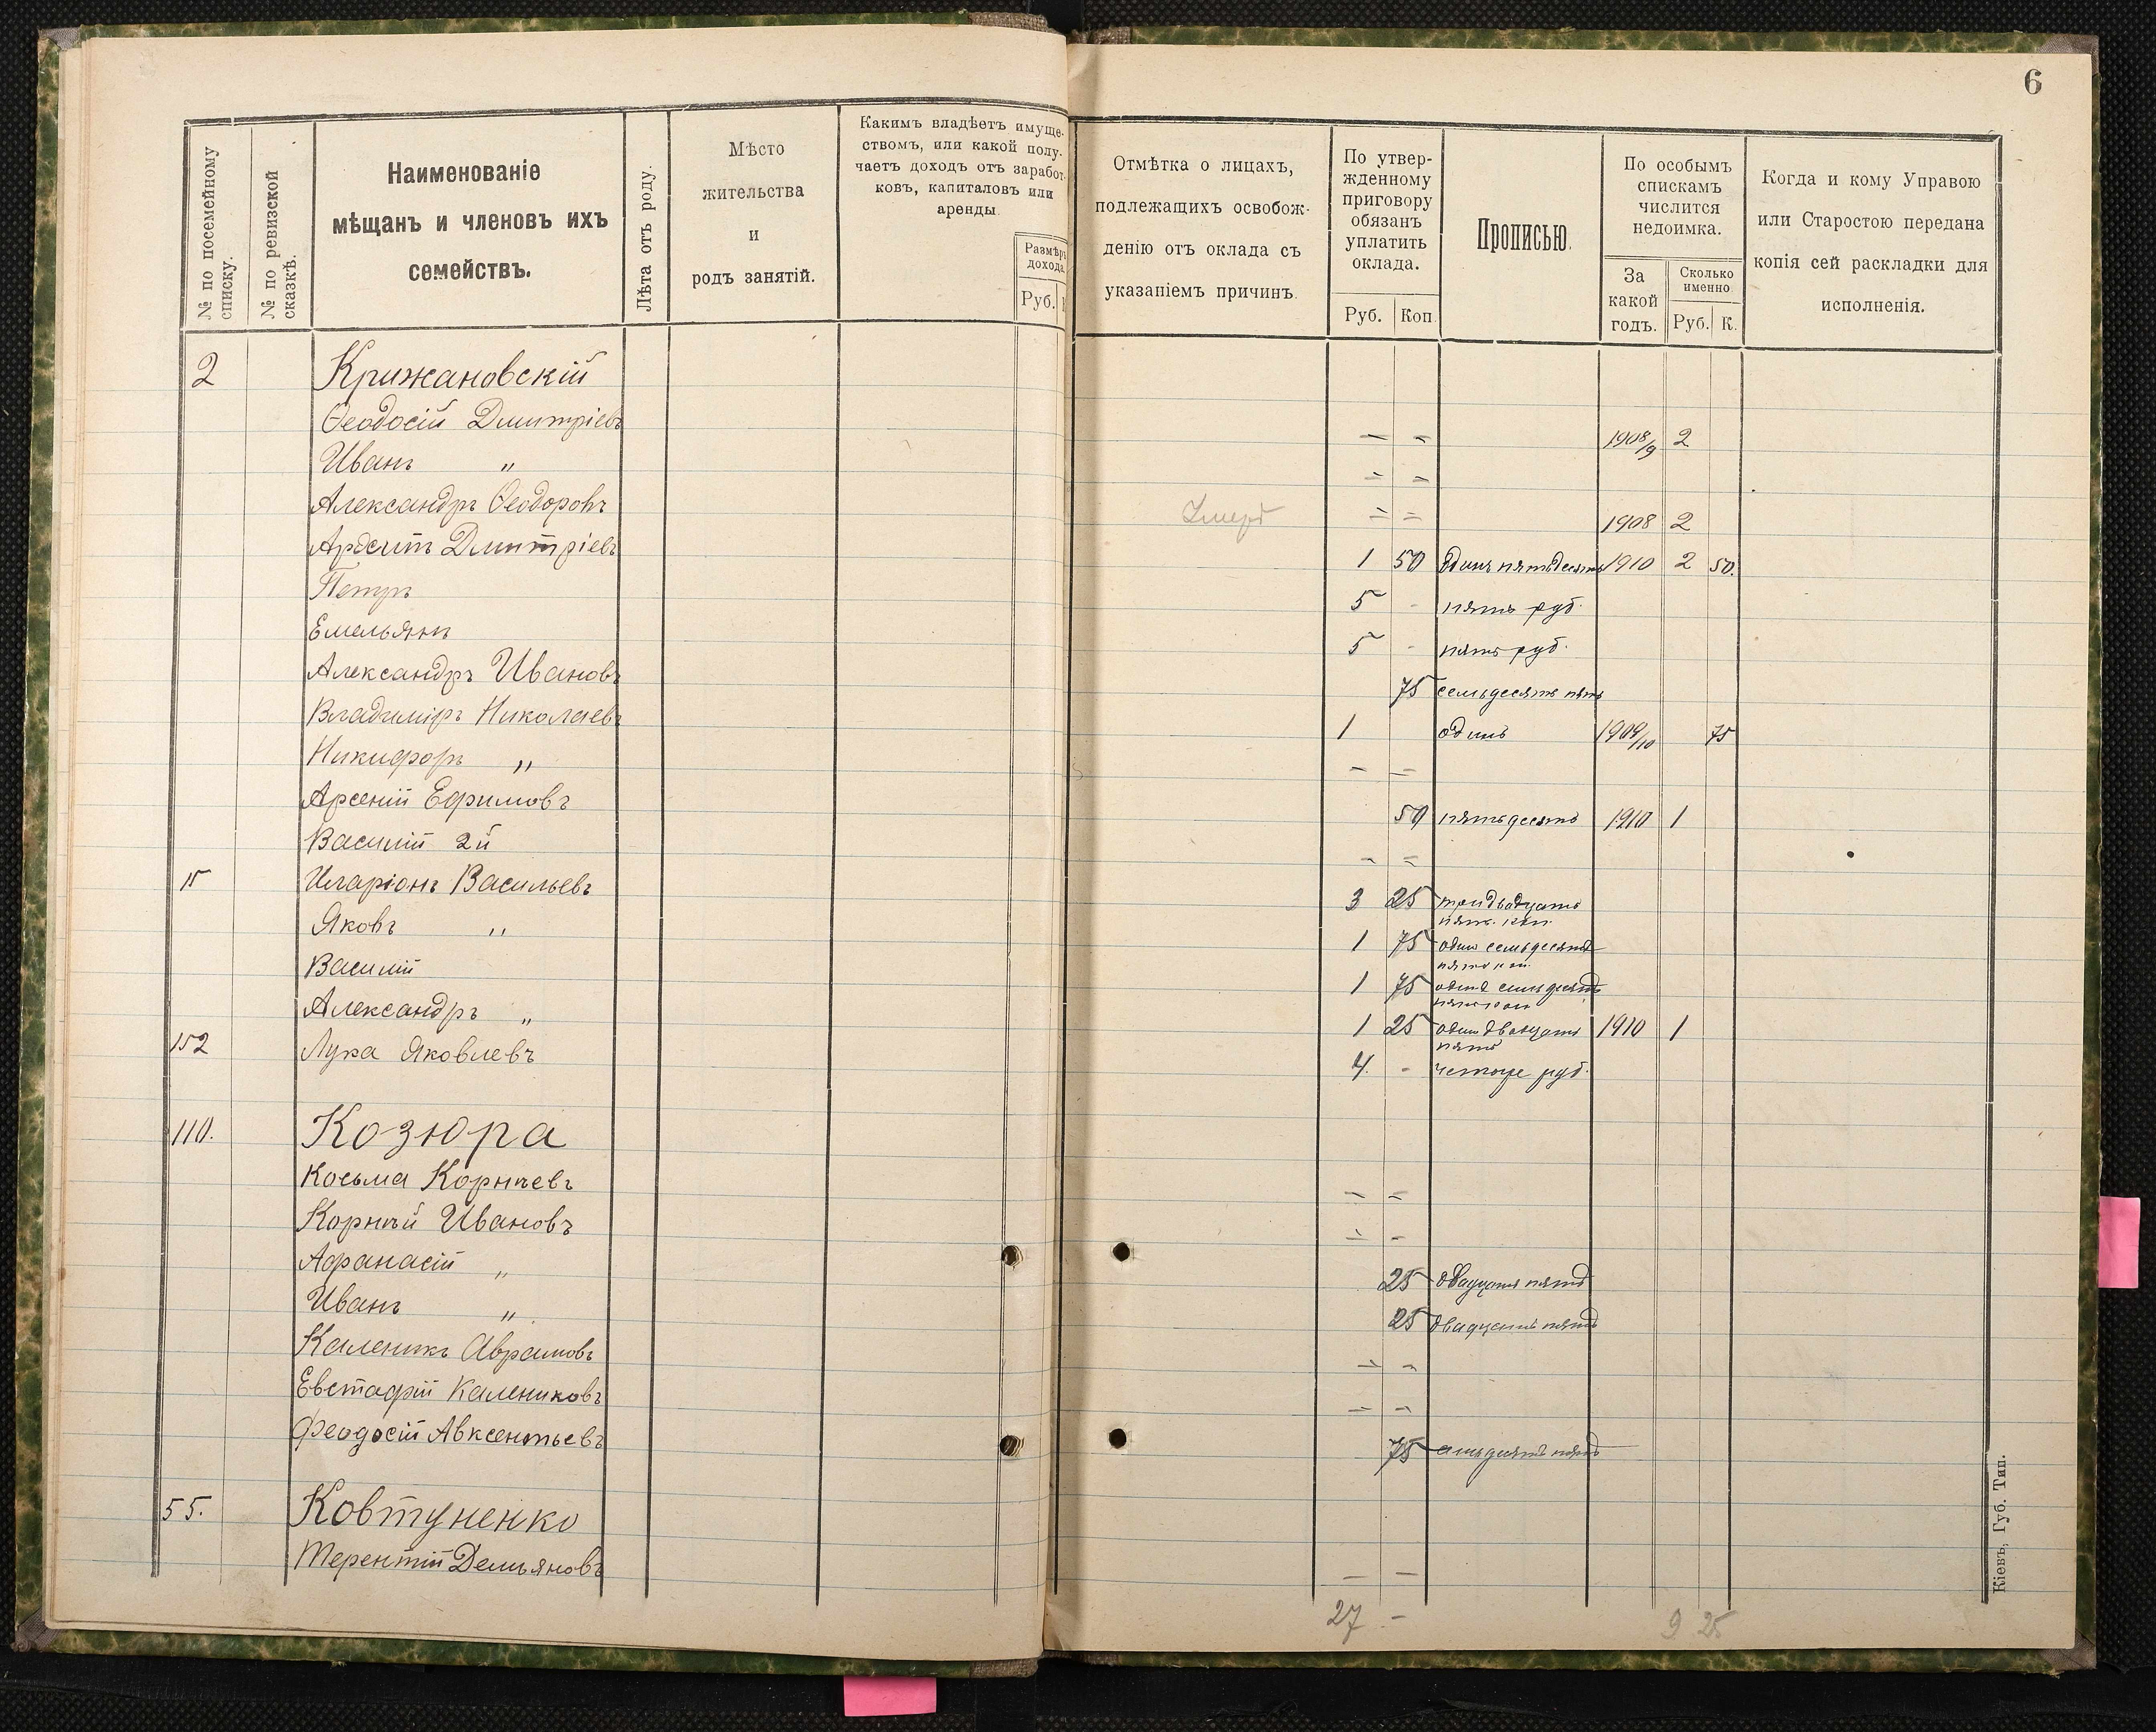 6
№ по посемейному списку.
№ по ревизской сказкѣ.
Наименованіе
мѣщанъ и членовъ ихъ
семействъ.
Лѣта отъ роду.
Мѣсто
жительства
и
родъ занятій.
Какимъ владѣетъ имуще-
ствомъ, или какой полу-
чаетъ доходъ отъ заработ-
ковъ, капиталовъ или
аренды.
Размѣръ
дохода.
Руб.
Отмѣтка о лицахъ,
подлежащихъ освобож-
денію отъ оклада съ
указаніемъ причинъ.
По утвер-
жденному
приговору
обязанъ
уплатить
оклада.
Руб. Коп.
Прописью.
По особымъ
спискамъ
числится
недоимка.
За
какой
годъ.
Сколько
именно.
Руб. К.
Когда и кому Управою
или Старостою передана
копія сей раскладки для
исполненія.
2 Крижановскій
Ѳеодосій Дмитріевъ — — 1908/9 2
Иванъ " — —
Александръ Ѳеодоровъ Умеръ — — 1908 2
Дмитріевъ 1 50 Одинъ пятьдесятъ 1910 2 50.
Петръ 5 - пять руб.
Емельянъ 5 - пять руб.
Александръ Ивановъ 75 семьдесять пять
Владиміръ Николаевъ 1 одинъ 1909/10 75
Никифоръ " — —
Арсеній Ефимовъ 50 пятьдесятъ 1910 1
Василій 2й — —
15 Иларіонъ Васильевъ 3 25 три двадцать
пять коп.
Яковъ " 1 75 один семьдесятъ
пять коп.
Василій 1 75 один семьдесятъ
пять коп
Александръ " 1 25 один двадцать 1910 1
пять
152 Лука Яковлевъ 4. - четыре руб.
110. Козюра
Косьма Корнѣевъ — —
Корнѣй Ивановъ — -
Афанасій " 25 двадцать пять
Иванъ " 25 двадцать пять
Каленикъ Аврамовъ — —
Евстафій Калениковъ — —
Феодосій Авксентьевъ 75 семьдесятъ пять
55. Ковтуненко
Терентій Демьяновъ — —
27 - 9 25
Кіевъ, Губ. Тип.